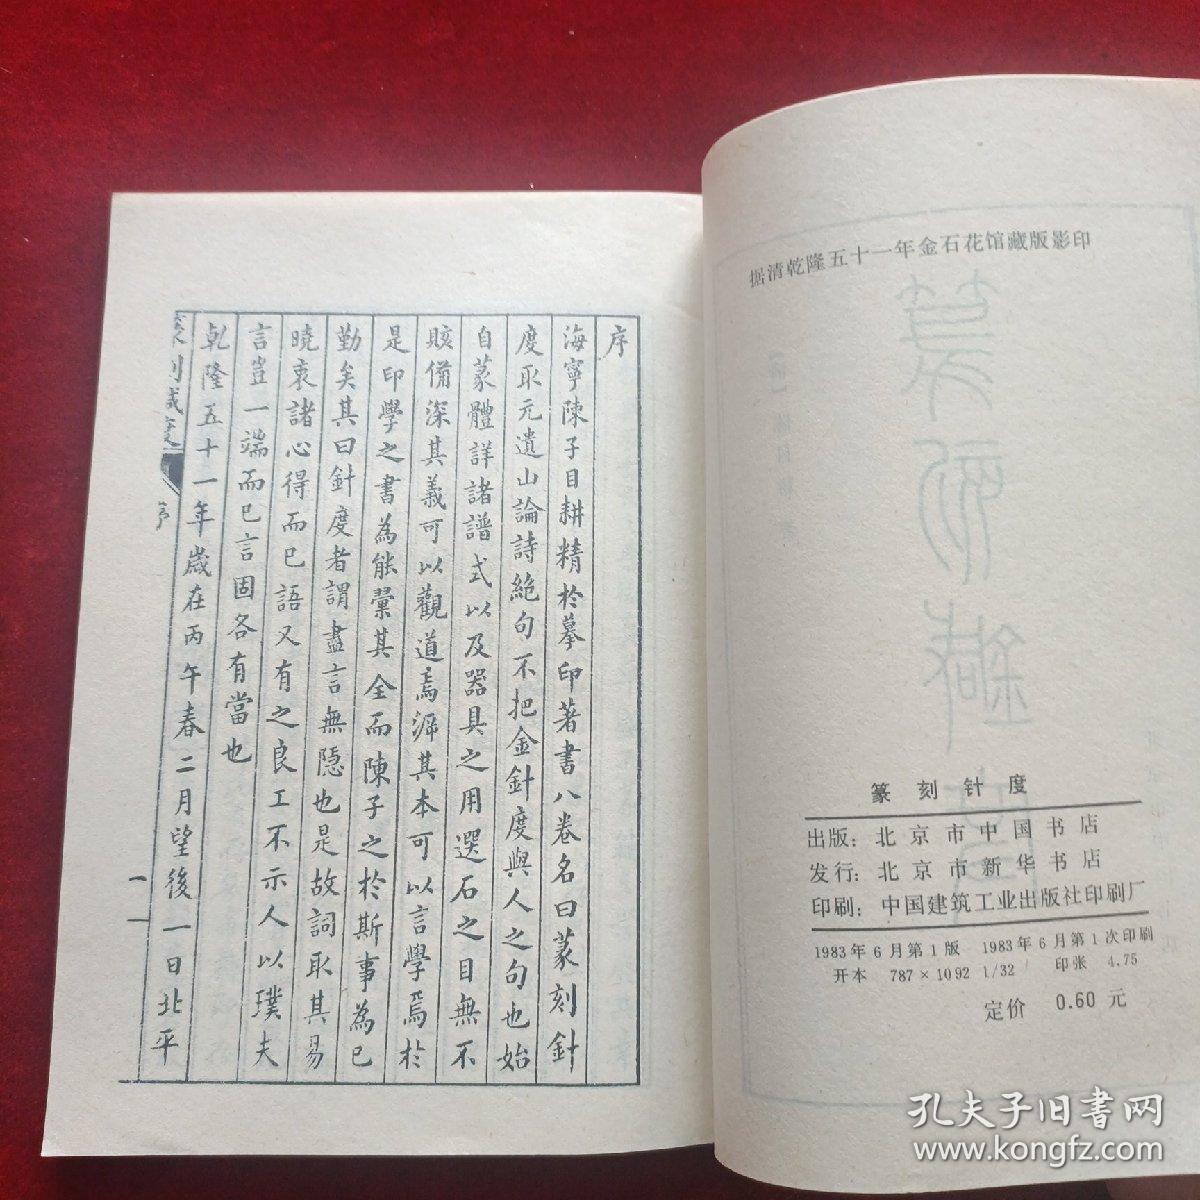 据清乾隆五十一年金石花馆藏版影印
篆刻针度
出版：北京市中国书店
发行：北京市新华书店
印刷：中国建筑工业出版社印刷厂
1983年6月第1版 1983年6月第1次印刷
开本 787×1092 1/32 印张 4.75
定价 0.60 元
序
海寧陳子目耕精於摹印著書八卷名曰篆刻針
度取元遺山論詩絶句不把金針度與人之句也始
自篆體詳諸譜式以及器具之用選石之目無不
賅備深其義可以觀道焉源其本可以言學焉於
是印學之書為能彚其全而陳子之於斯事為已
勤矣其曰針度者謂盡言無隱也是故詞取其易
曉衷諸心得而已語又有之良工不示人以璞夫
言豈一端而已言固各有當也
乾隆五十一年歲在丙午春二月望後一日北平
篆刻鍼度
序
一
孔夫子旧书网
www.kongfz.com